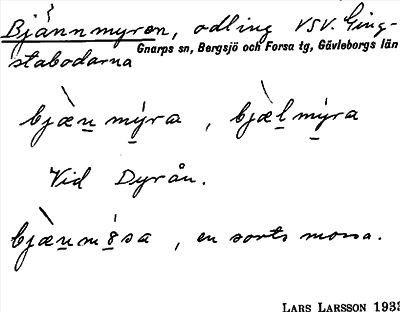 Bjännmyren, odling VSV. Ging-
stabodarna
Gnarps sn, Bergsjö och Forsa tg, Gävleborgs län
bjæ̀n mýra , bjæ̀l mýra
Vid Dyrån.
bjæ̀nmósa , en sorts mossa.
LARS LARSSON 1933